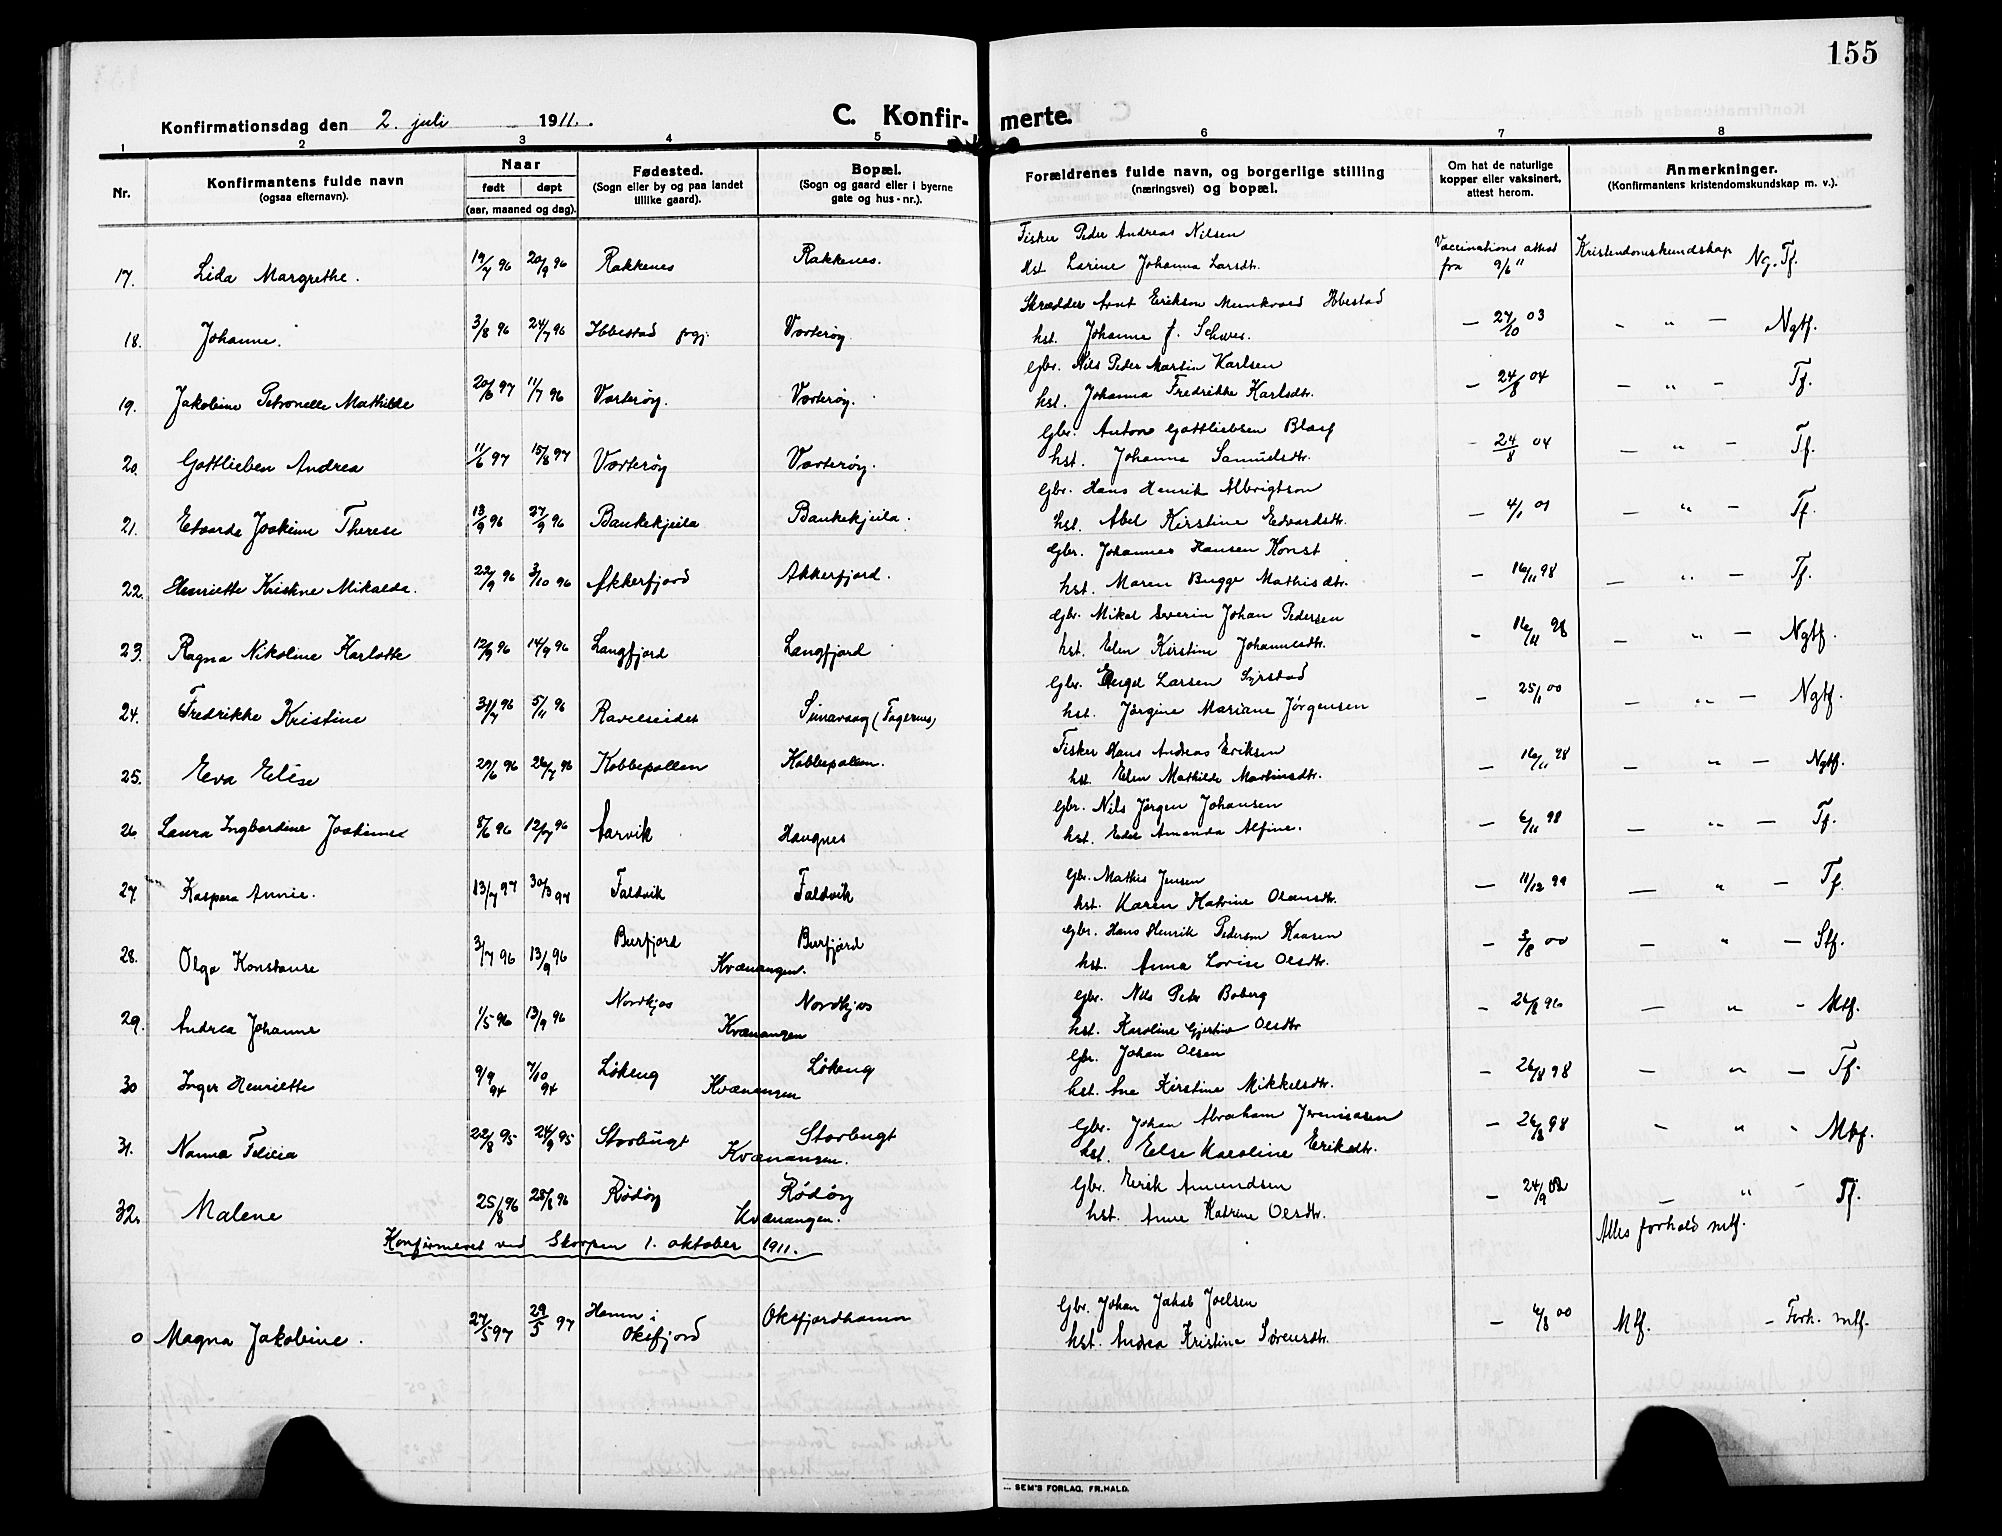 155
Konfirmationsdag den 2. juli 1911.
C. Konfirmerte.
1 2 3 4 5 6 7 8
Nr.
Konfirmantens fulde navn
(ogsaa efternavn).
Naar
født døpt
(aar, maaned og dag).
Fødested.
(Sogn eller by og paa landet
tillike gaard).
Bopæl.
(Sogn og gaard eller i byerne
gate og hus-nr.).
Forældrenes fulde navn, og borgerlige stilling
(næringsvei) og bopæl.
Om hat de naturlige
kopper eller vaksinert,
attest herom.
Anmerkninger.
(Konfirmantens kristendomskundskap m. v.).
Fisker Peder Andreas Nilsen
17. Lida Margrethe. 19/7 96 20/9 96 Rakkenes Rakkenes. Hst. Larine Johanna Larsdt. Vaccinations attest fra 9/6 11 Kristendomskundskap Ng. Tf.
Skrædder Arnt Erikson Munkvord Ibbestad
18. Johanne. 3/8 96 24/7 96 Ibbestad prgj. Vorterøy. hst. Johanne f. — 27/10 03 - " — Ngtf.
Gbr. Nils Peder Martin Karlsen
19. Jakobine Petronelle Mathilde 20/6 97 11/7 96 Vorterøy. Vorterøy. hst. Johanna Fredrikke Karlsdt. — 24/8 04 — " — Tf.
Gbr. Anton Gottliebsen
20. Gottlieben Andrea 11/6 97 15/8 97 Vorterøy Vorterøy. hst. Johanna Samuelsdtr. - 24/8 04 — " — Tf.
Gbr. Hans Henrik Albrigtson
21. Edvarda Joakime Therese 13/9 96 27/9 96 Bankekjeila Bankekjeila. hst. Abel Kirstine Edvardsdtr. — 4/1 01 — " — Tf.
Gbr. Johannes Hansen Konst
22. Henriette Kristine Mikalda. 22/9 96 3/10 96 Akkerfjord Akkerfjord. hst. Maren Bugge Mathisdtr. — 16/11 98 — " — Tf.
Gbr. Mikal Severin Johan Pedersen
23. Ragna Nikoline Karlotte 12/9 96 14/9 96 Langfjord Langfjord hst. Elen Kirstine Johannesdtr. - 16/11 98 — " — Ngtf.
Gbr. Engel Larsen Syrstad
24. Fredrikke Kristine 31/7 96 5/11 96 Ravelseidet (Tagernes) hst. Jørgine Mariane Jörgensen — 25/1 00 — " — Ngtf.
Fisker Hans Andreas Eriksen
25. Eva Elise 29/6 96 26/7 96 Kobbepollen Kobbepollen. hst. Elen Mathilde Martinsdtr. — 16/11 98 — " — Ngtf.
Gbr. Nils Jörgen Johansen
26. Laura Ingbordine Joakime 8/6 96 12/7 96 Aarvik Haugnes hst. Edel Amanda Alfine. — 6/11 98 — " — Tf.
Gbr. Mathis Jensen
27. Kaspara Annie. 13/7 97 30/3 97 Faldvik Faldvik hst. Karen Katrine Olausdtr. — 11/12 99 — " — Tf.
Burfjord Burfjord Gbr. Hans Henrik Pedersen Kaasen
28. Olga Konstanse 3/7 96 13/9 96 Kvænangen. hst. Anna Lovise Olsdtr. — 3/8 00 — " — Stf.
Nordkjos Nordkjos Gbr. Nils Peter Boberg
29. Andrea Johanne 1/5 96 13/9 96 Kvænangen hst. Karoline Gjertine Olsdtr — 26/8 96 — " - Mtf.
Løkeng Løkeng Gbr. Johan Olsen
30 Inger Henriette 9/9 94 7/10 94 Kvænangen hst. Ane Kirstine Mikkelsdtr. — 26/8 98 — " — Tf.
Storbugt Storbugt Gbr. Johan Abraham Jeremiasen
31. Nanna Felicia 22/8 95 24/9 95 Kvænangen. hst. Else Karoline Eriksdtr. — 26/8 98 — " - Mtf.
Rødøy Rødøy Gbr. Erik Amundsen
32. Malene 25/8 96 25/8 96 Kvænangen. hst. Anne Katrine Olsdtr. — 24/9 02 — " - Tf.
Konfirmeret ved Skorpen 1. oktober 1911. Alles forhold mtf.
Hamn i Gbr. Johan Jakob Joelsen
0 Magna Jakobine. 27/5 97 29/5 97 Oksfjord Oksfjordhamn hst. Andrea Kristine Sørensdtr. — 6/8 00 Mtf. - Forh. mtf.
SEM'S FORLAG, FR.HALD.